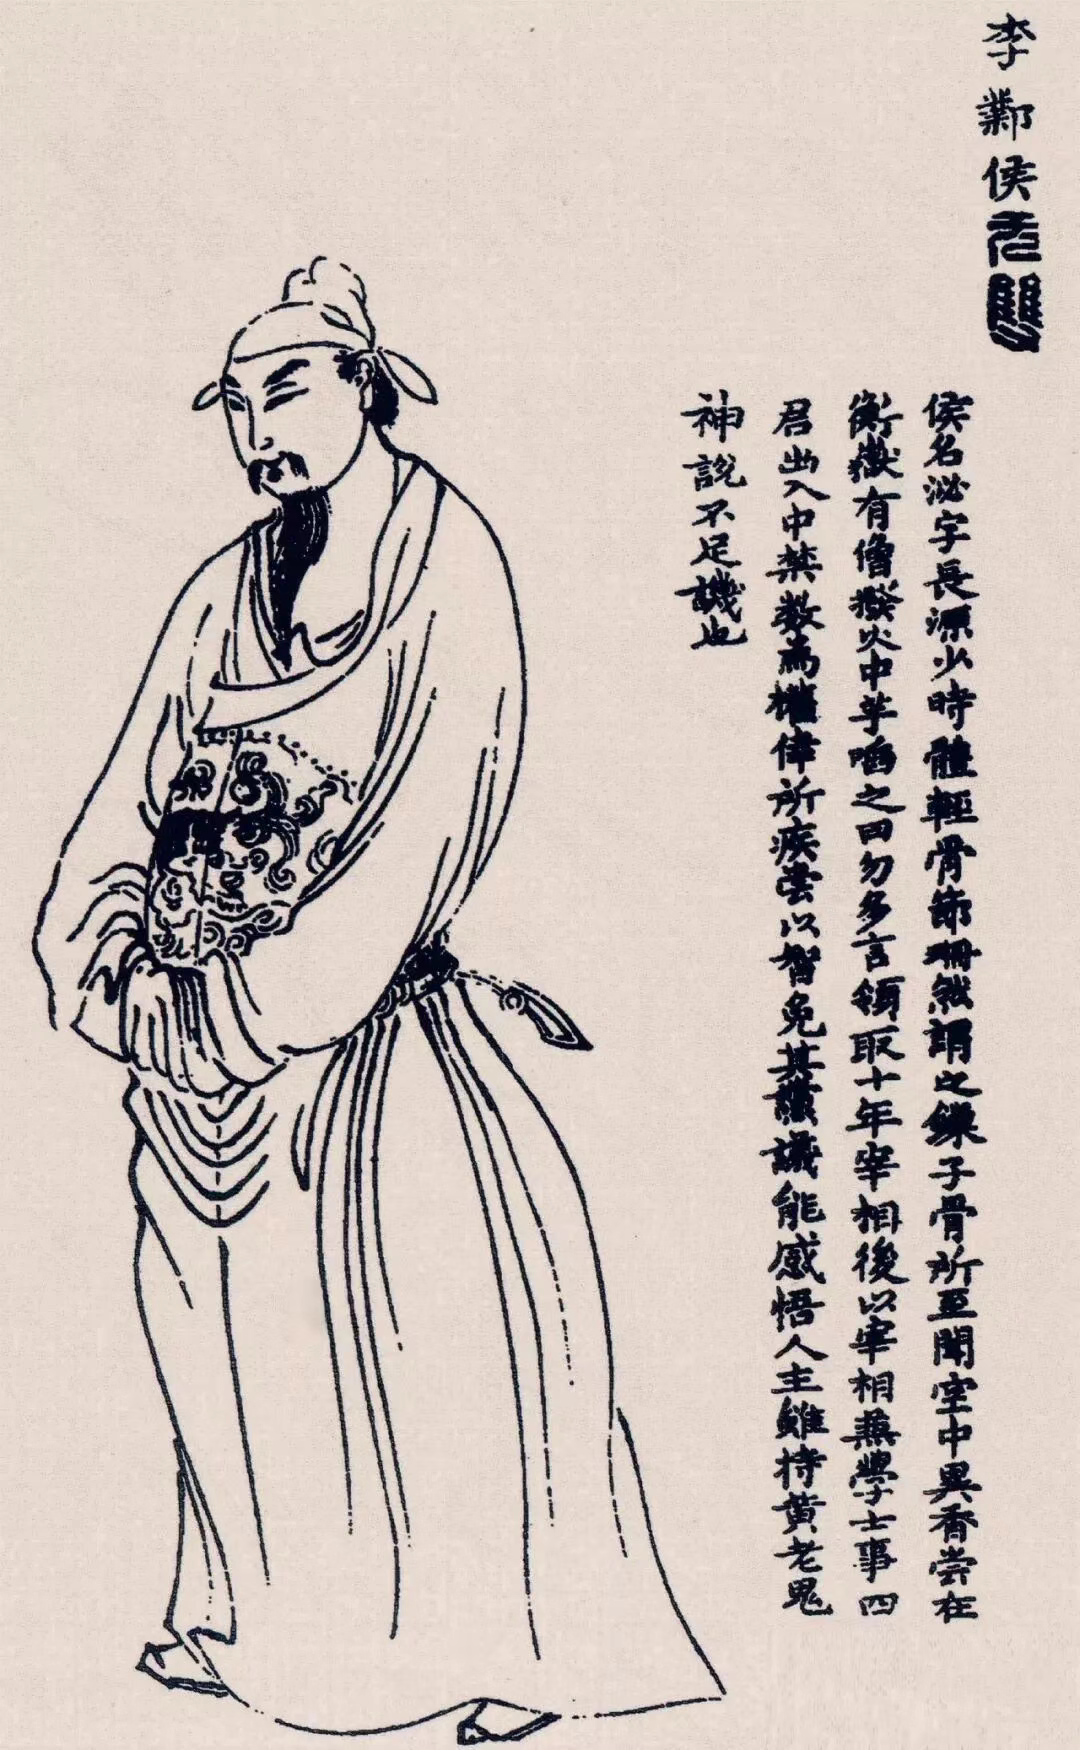 李鄴侯
無雙
侯名泌字長源少時體輕骨節珊然謂之鎖子骨所至聞空中異香嘗在
衡嶽有僧撥火中芋啗之曰勿多言領取十年宰相後以宰相兼學士事四
君出入中禁数為權倖所疾嘗以智免其讜議能感悟人主雖持黄老鬼
神說不足譏也